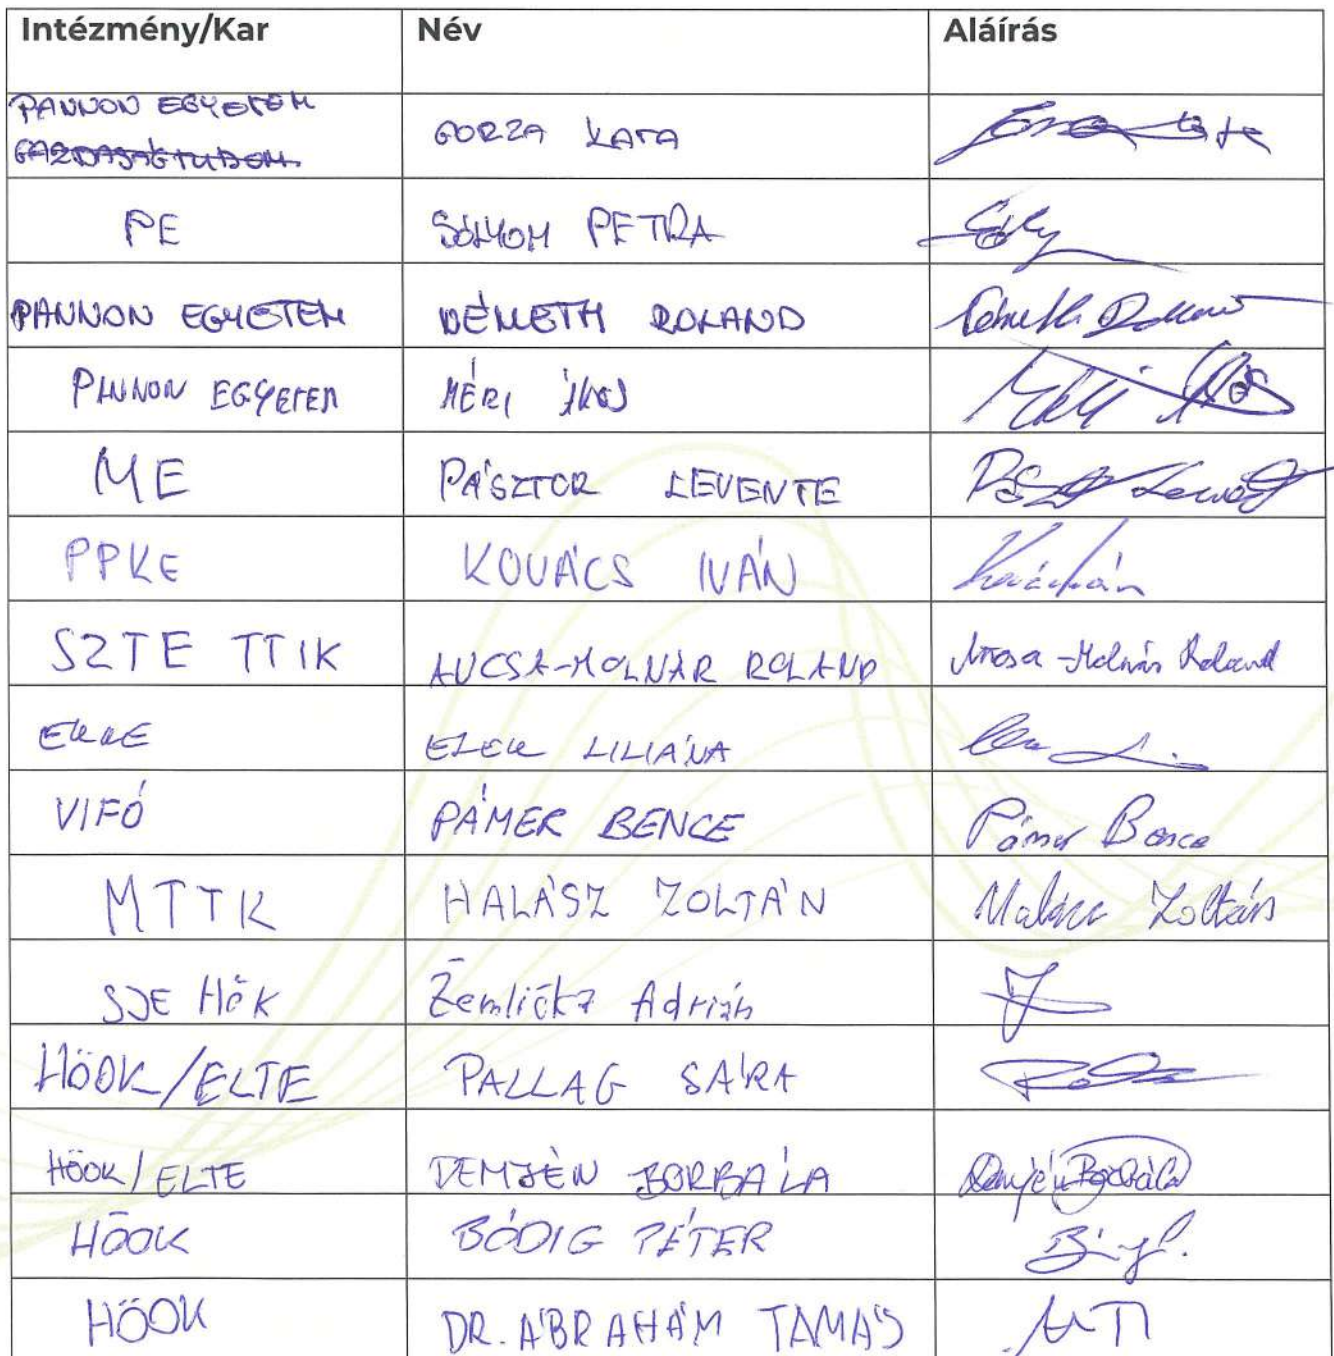 Intézmény/Kar Név Aláírás
PANNON EGYETEM
GAZDASÁGTUDOM. GORZA KATA
PE SÓLYOM PETRA Sóly
PANNON EGYETEM NÉMETH ROLAND Németh Roland
PANNON EGYETEM MÉRI ÁKOS Méri Ákos
ME PÁSZTOR LEVENTE
PPKE KOVÁCS IVÁN
SZTE TTIK AUCSA-MOLNÁR ROLAND Aucsa-Molnár Roland
EKKE ELEK LILIÁNA
VIFÓ PÁMER BENCE Pámer Bence
MTTK HALÁSZ ZOLTÁN Halász Zoltán
SJE HÖK Žemlička Adrián
HÖOK/ELTE PALLAG SÁRA
HÖOK/ELTE DEMJÉN BORBÁLA Demjén Borbála
HÖOK BÓDIG PÉTER
HÖOK DR. ÁBRAHÁM TAMÁS